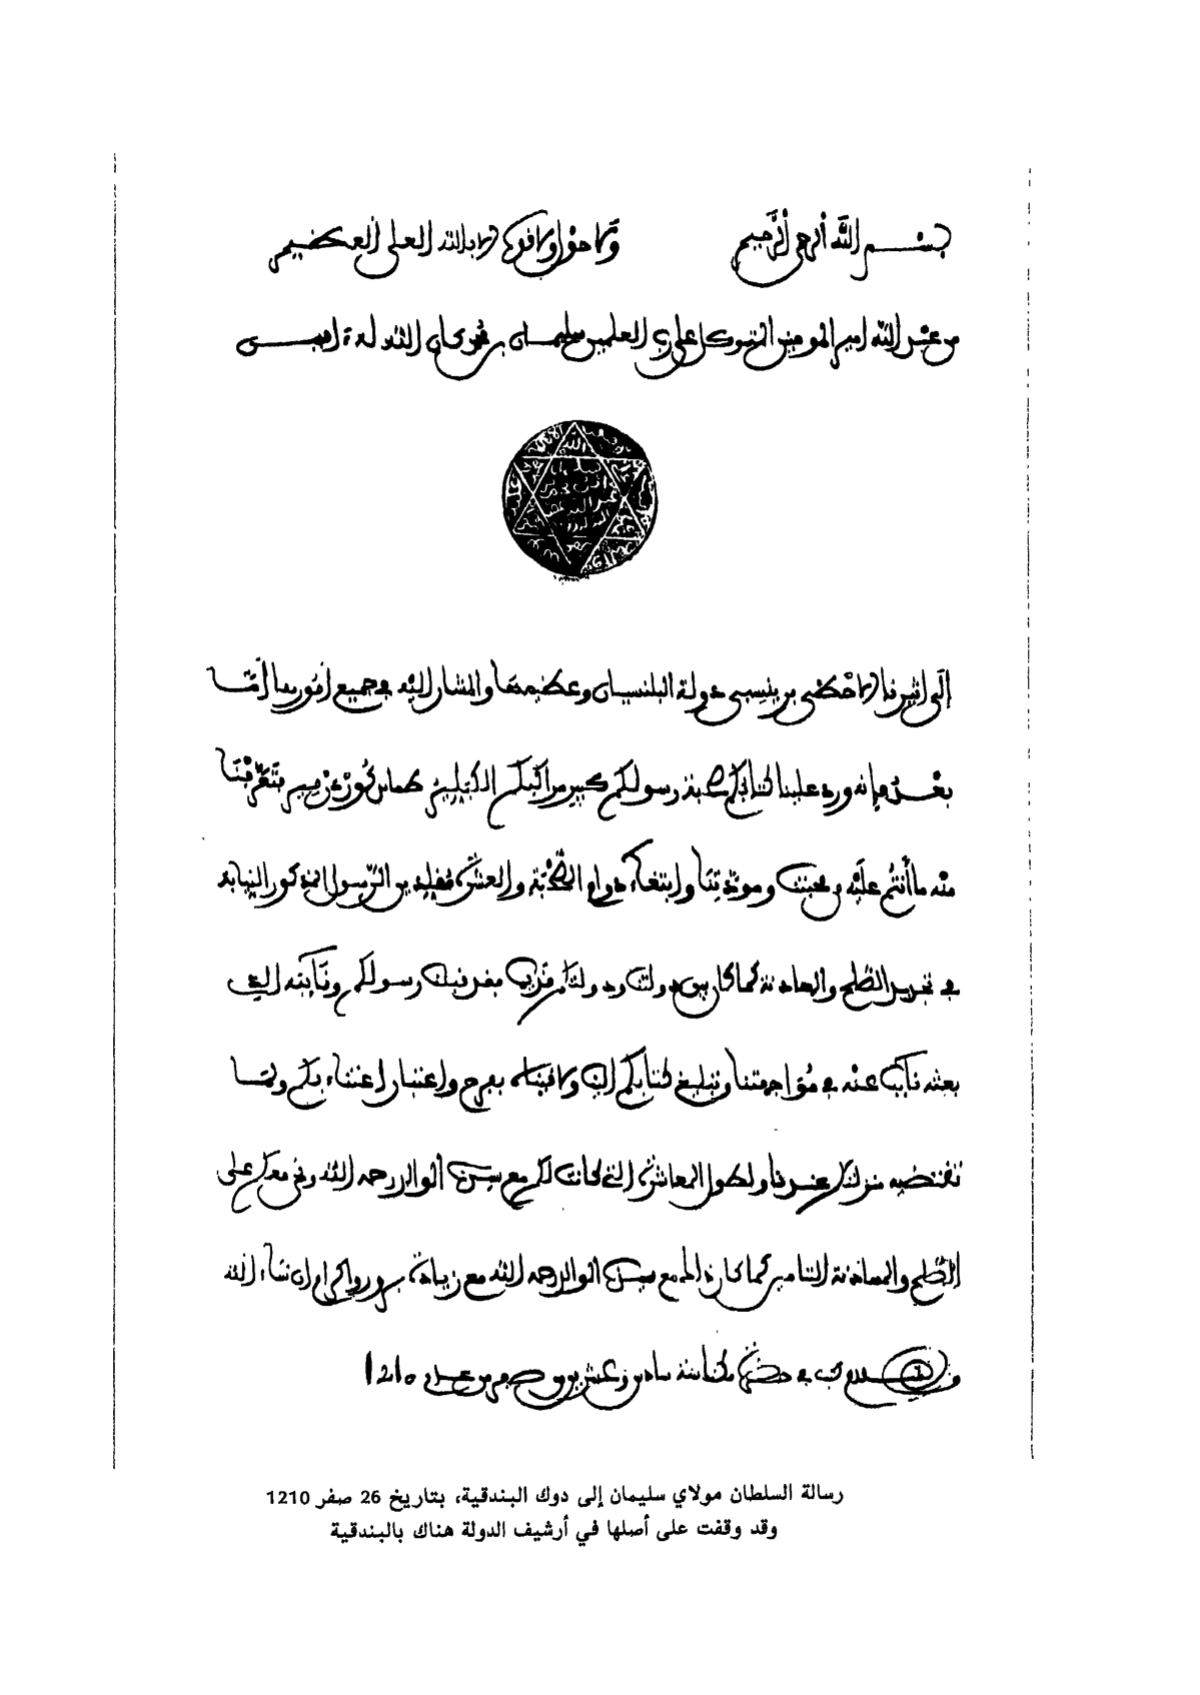 بسم الله الرحمن الرحيم ولا حول ولا قوة إلا بالله العلي العظيم
من عبد الله امير المومنين المتوكل على رب العلمين سليمان بن محمد كان الله له آمين
الله
إلى اثيرنا الاحظى دولة البلنسيان وعظيمها والمشار اليه في جميع أمورها أمّا
بعْد فإنه ورد علينا كتابكم صحبة رسولكم كبير مراكبكم فتعرّفْنَا
منه ما أنتم عليْه من محبتنا ومودّتِنَا وابتغاء دوام المحبّة والعشرة الرّسول المذكور النيابة
في تجديد الصّلح والمهادنة كما كان بين دولتنا ودولتكم رسولكم ونَآئبه الذي
بعثه نآئبا عنه في مُوَاجهتنا وتبليغ كتابكم إلينا ولاقيناه بفرح واعتبار اعتناء بكم ولما
تقتضيه منزلتكم عندنا ولطول المعاشرة التي كانت لكم مع سيدنا الوالد رحمه الله ونحن معكم على
الصّلح والمهادنة التامين كما كان الحال مع سيدنا الوالد رحمه الله مع زيادة برور واكرام إن شاء الله
والسلام كتب في حضرة مكناسة سادس وعشرين من صفر من عام 1210
رسالة السلطان مولاي سليمان إلى دوك البندقية، بتاريخ 26 صفر 1210
وقد وقفت على أصلها في أرشيف الدولة هناك بالبندقية